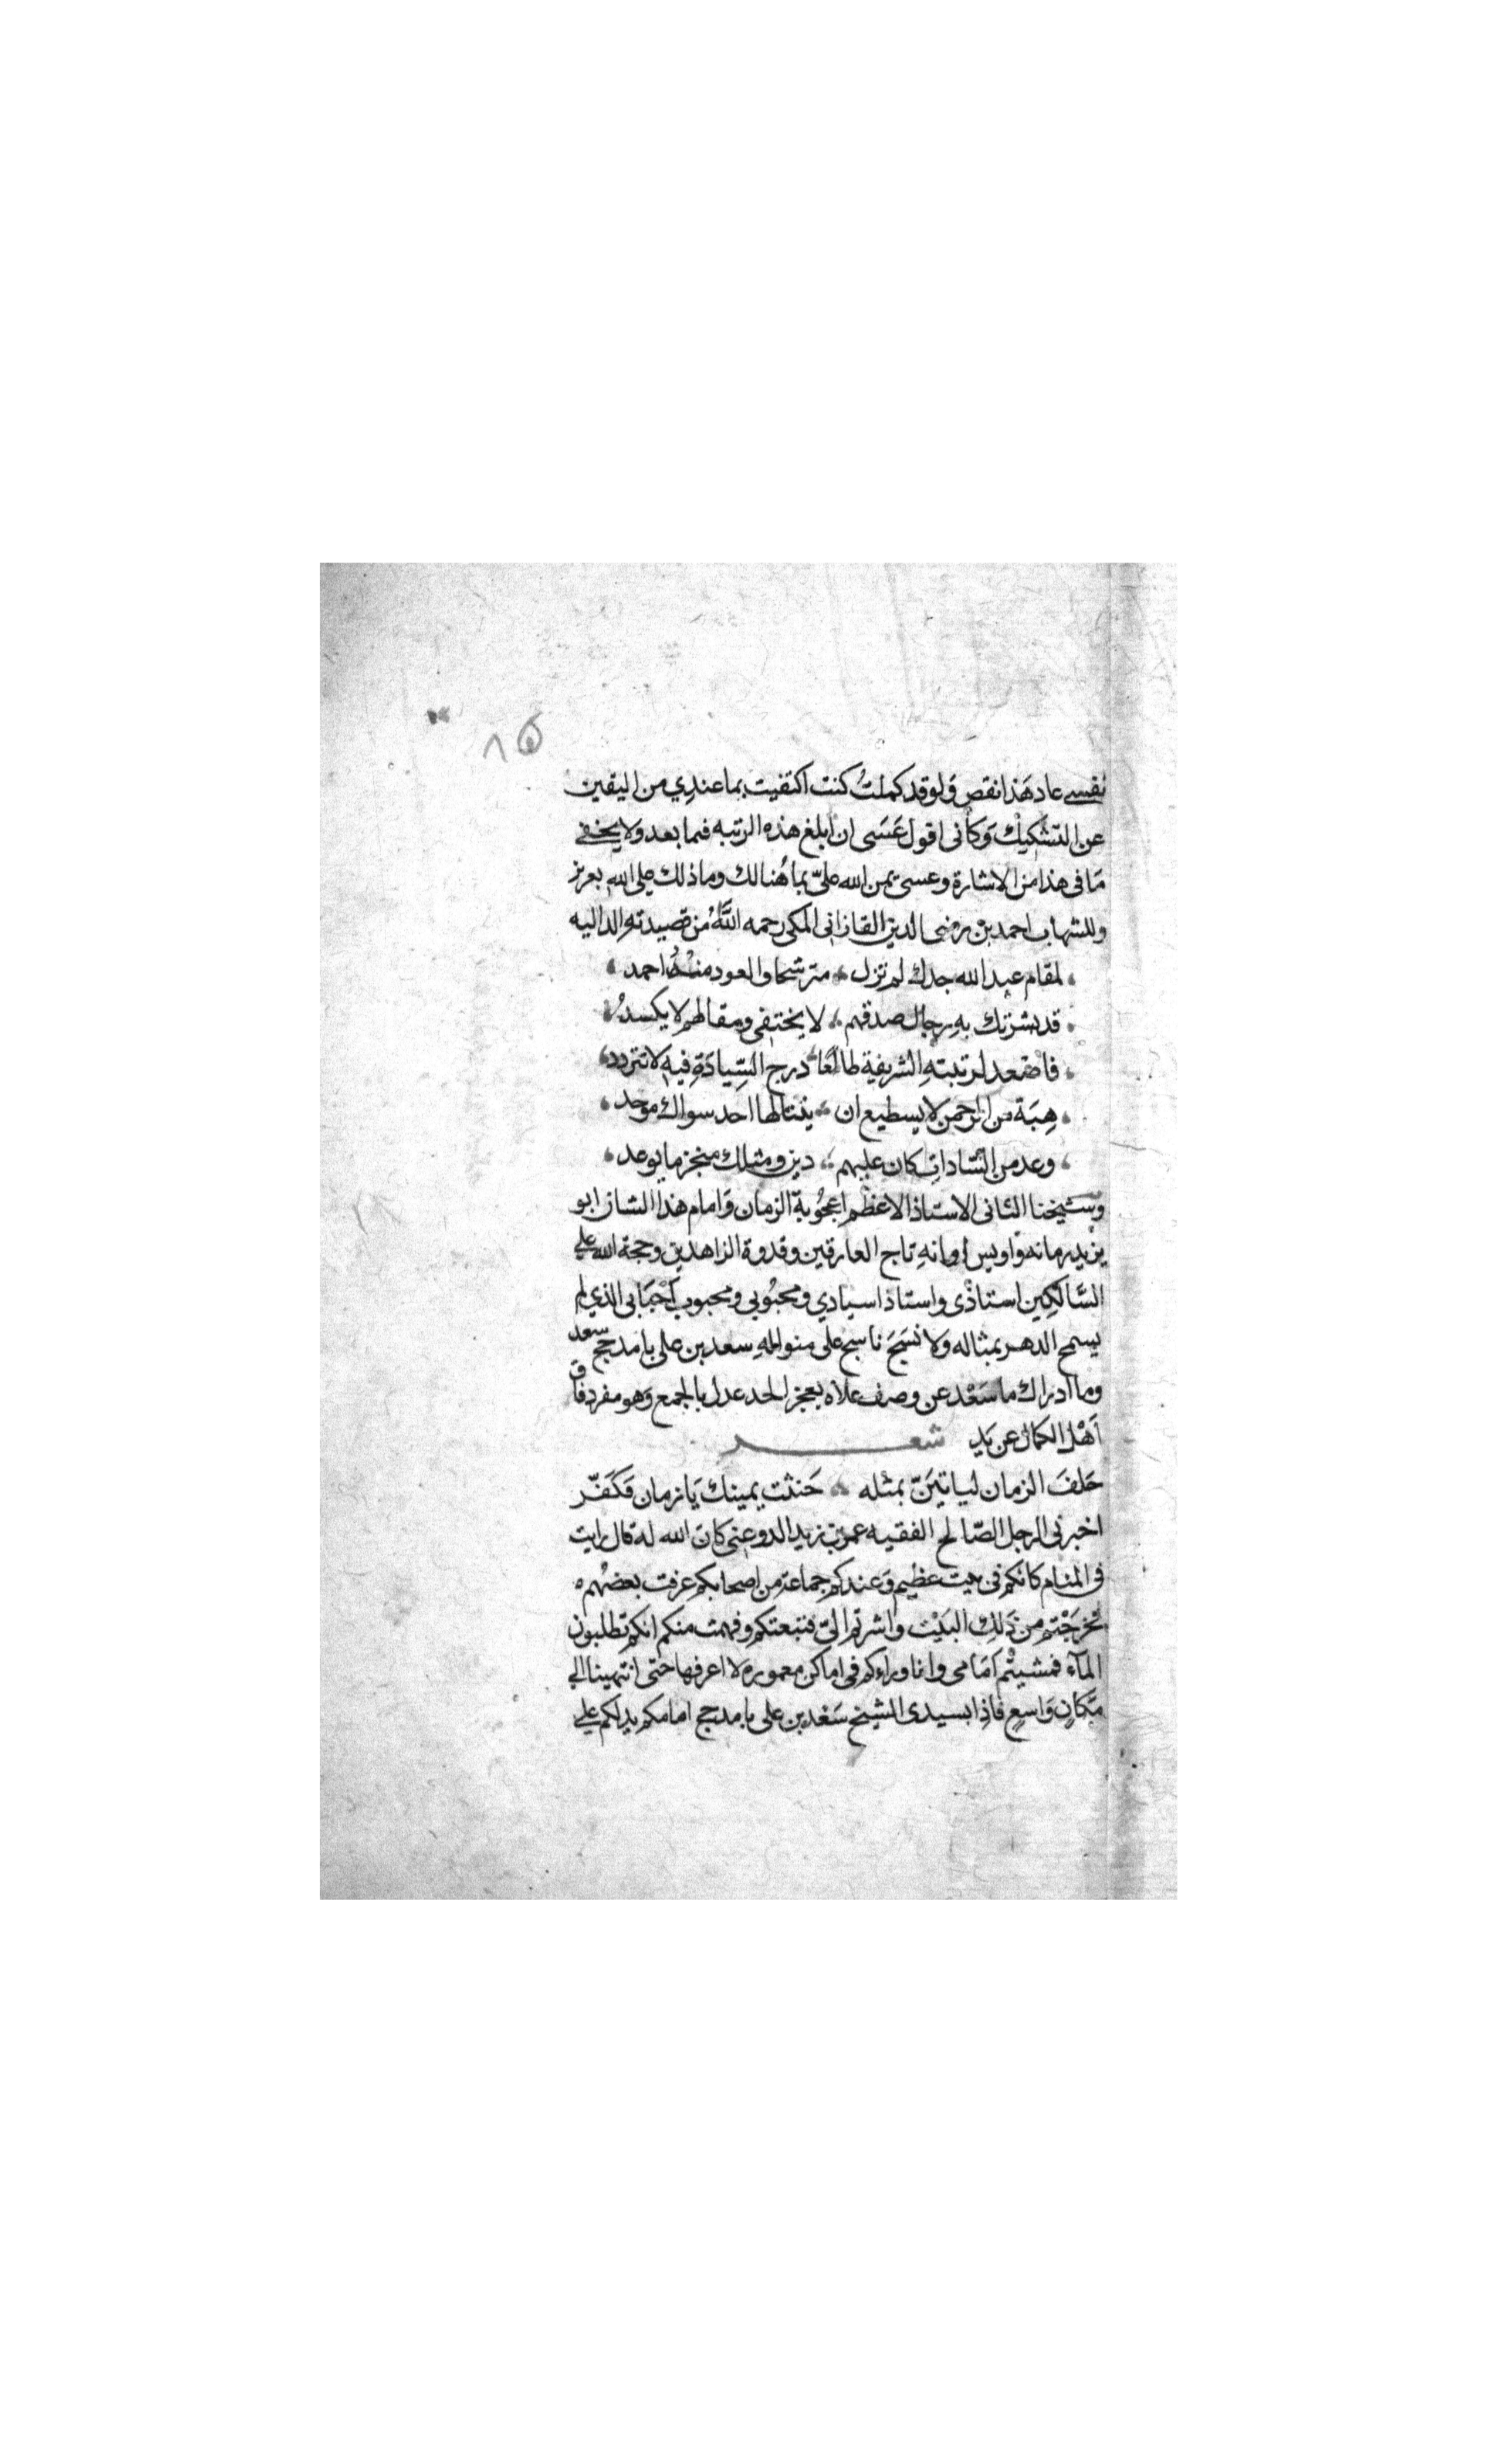 ٨٥
نفسي عاد هَذا نقص وَلو قد كملتُ كنت اكتفيت بما عندِي من اليقين
عن التشكيك وَكأنى اقول عَسَى ان ابلغ هذه الرتبه فيما بعد ولا يخفى
مَا فى هذا من الاشارة وعسى يمن الله علىّ بما هُنالك وما ذلك على الله بعزيز
وللشهاب احمد بن رضى الدين القازانى المكى رحمه اللَّه من قصيدتهِ الداليه
لمقام عبد الله جدك لم تزل مترشحا والعود منهُ احمد
قد بشرتك بهِ رجال صدقهم لا يختفى ومقالهم لا يكسدُ
فاصْعد لرتبتهِ الشريفة طالعًا درج السِّيادَةِ فيهِ لا تتردد
هِبَة من الرحمن لا يسطيع ان ينتالها احد سواك موَحد
وعد من السَّاداتِ كان عليهم دين ومثلك منجز ما يوعد
وشيخنا الثانى الاستاذ الاعظم اعجُوبة الزمان وَامام هذا الشان ابو
يزيد زمانه وَاويس اوانهِ تاج العارفين وقدوة الزاهدين وحجة الله على
السَّالكِين استاذى واستاذ اسيادي ومحبُوبي ومحبوب اَحْبَابى الذي لم
يسمح الدهر بمثاله وَلا نسَجَ ناسج على منوالهِ سعد بن على بامدحج سعد
وما ادراك ما سَعْد عن وصف علاه يعجز الحد عدل بالجمع وَهو مفرد فاق
اَهْل الكمال عن يَدِ شعر
حَلفَ الزمان لياتيَنّ بمثله حَنثت يمينك يَا زمان فكَفّر
اخبرنى الرجل الصّالح الفقيه عمر بن زيد الدوعنى كان الله له قال رايت
فى المنام كانكم فى بيت عظيم وَعندكم جماعة من اصحابكم عرفت بعضهُم
فخرجْتم من ذَلِك البَيْت وَاشرتم الىّ فتبعتكم وفهمت منكم انكم تطلبون
المآء فمشيتُم اَمَامى وانا وراءكم فى اماكن معموره لا اعرفها حتى انتهينا الى
مَكانٍ وَاسعٍ فاذا بسيدى الشيخ سَعْد بن على بامدحج امامكم يدلكم على